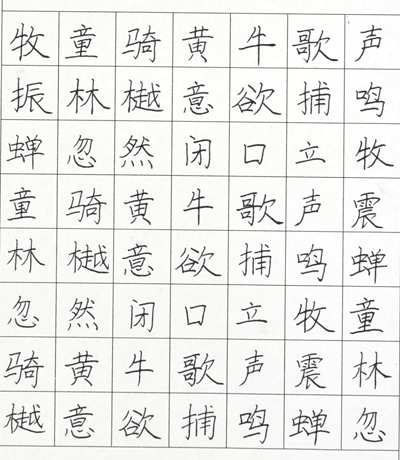 牧童骑黄牛歌声
振林樾意欲捕鸣
蝉忽然闭口立牧
童骑黄牛歌声震
林樾意欲捕鸣蝉
忽然闭口立牧童
骑黄牛歌声震林
樾意欲捕鸣蝉忽